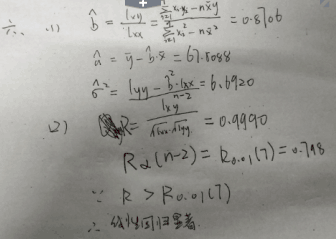 六、(1) b̂ = lxy / lxx = (Σxᵢyᵢ - nx̄ȳ) / (Σxᵢ² - nx̄²) = 0.8706
â = ȳ - b̂·x̄ = 67.5088
σ̂² = (lyy - b̂²·lxx) / (n-2) = 6.6920
(2) R = lxy / (√lxx·√lyy) = 0.9990
Rα(n-2) = R0.01(7) = 0.798
∵ R > R0.01(7)
∴ 线性回归显著.